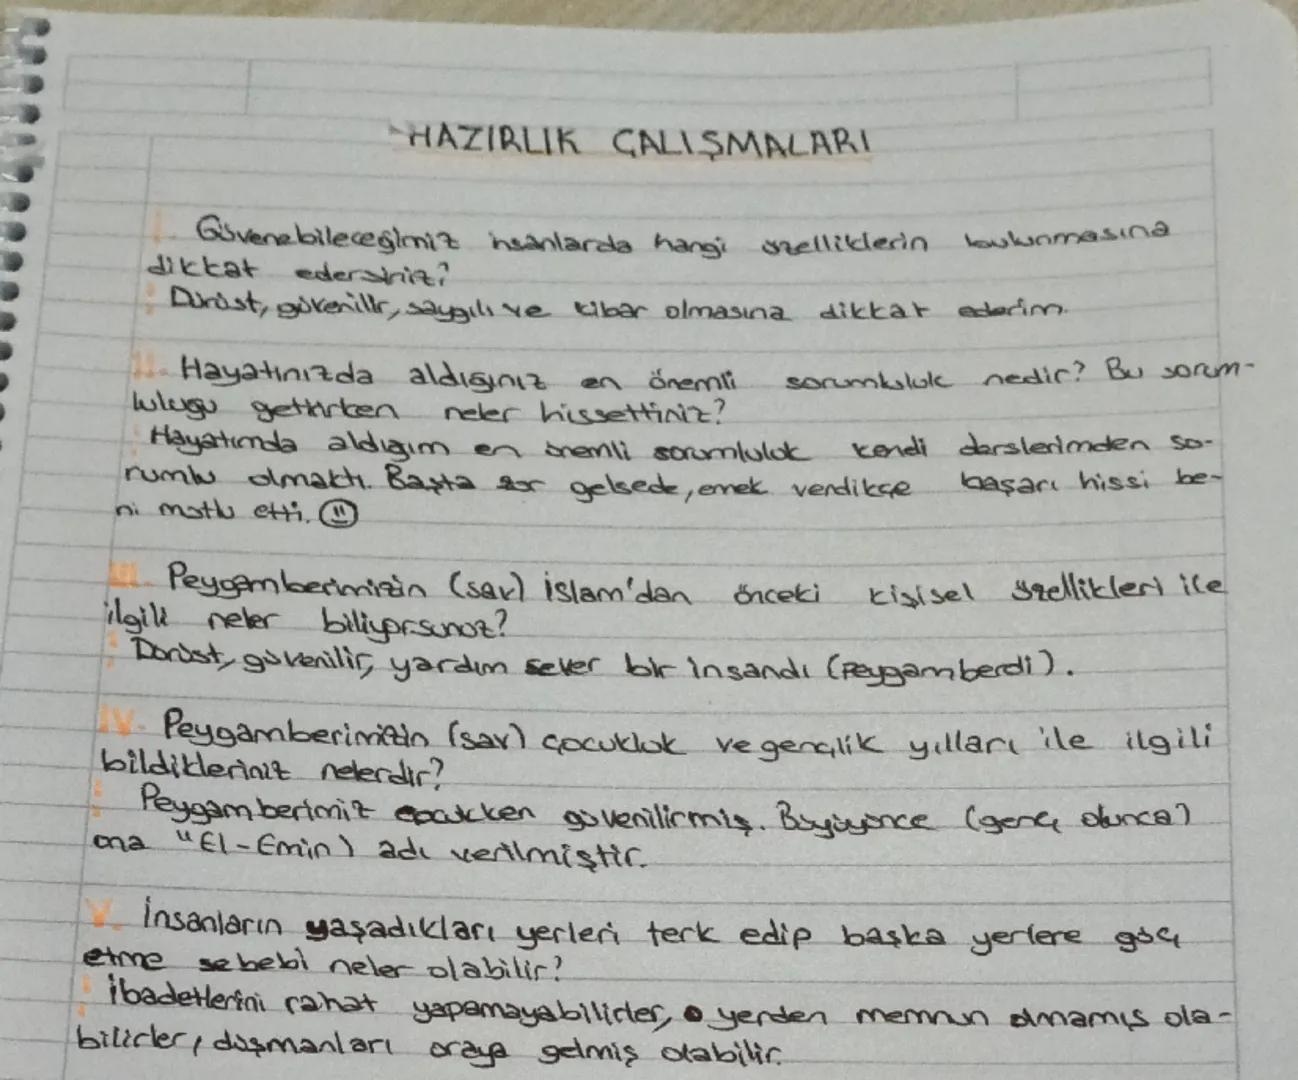 HAZIRLIK ÇALIŞMALARI
I. Güvenebileceğimiz insanlarda hangi özelliklerin bulunmasına
dikkat edersiniz?
Dürüst, güvenilir, saygılı ve kibar olmasına dikkat ederim.
II. Hayatınızda aldığınız en önemli sorumluluk nedir? Bu sorum-
luluğu getirirken neler hissettiniz?
Hayatımda aldığım en önemli sorumluluk kendi derslerimden so-
rumlu olmaktı. Başta zor gelsede, emek verdikçe başarı hissi be-
ni mutlu etti.
III. Peygamberimizin (sav) İslam'dan önceki kişisel özellikleri ile
ilgili neler biliyorsunuz?
Dürüst, güvenilir, yardım sever bir insandı (peygamberdi).
IV. Peygamberimizin (sav) çocukluk ve gençlik yılları ile ilgili
bildikleriniz nelerdir?
Peygamberimiz çocukken güvenilirmiş. Büyüyünce (genç olunca)
ona "El-Emin) adı verilmiştir.
V. İnsanların yaşadıkları yerleri terk edip başka yerlere göç
etme sebebi neler olabilir?
İbadetlerini rahat yapamayabilirler, o yerden memnun olmamış ola-
bilirler, düşmanları oraya gelmiş olabilir.